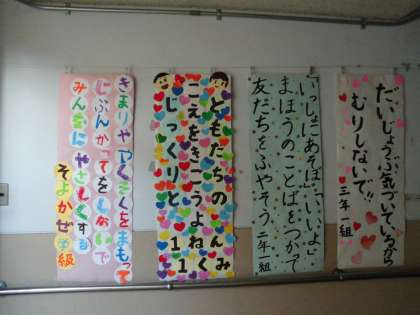 きまりややくそくをまもって
じぶんかってをしないで
みんなにやさしくする
そよかぜ学級
ともだちの
こえをきこうよ
じっくりと
1ねん
1くみ
「いっしょにあそぼ」「いいよ」
まほうのことばをつかって
友だちをふやそう
二年一組
だいじょうぶ気づいているから
むりしないで!!
三年一組